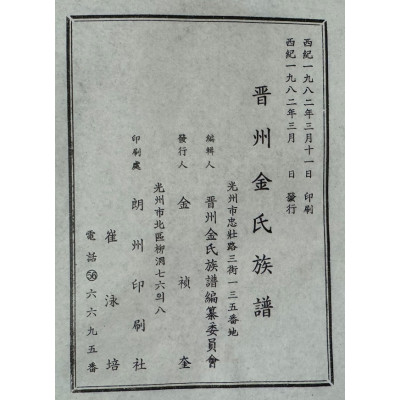 西紀一九八二年三月十一日 印刷
西紀一九八二年三月 日 發行
晋州金氏族譜
光州市忠壯路三街一三五番地
編輯人 晋州金氏族譜編纂委員會
發行人 金禎奎
光州市北區柳洞七六의八
印刷處 朗州印刷社
崔泳培
電話 56 六六九五番